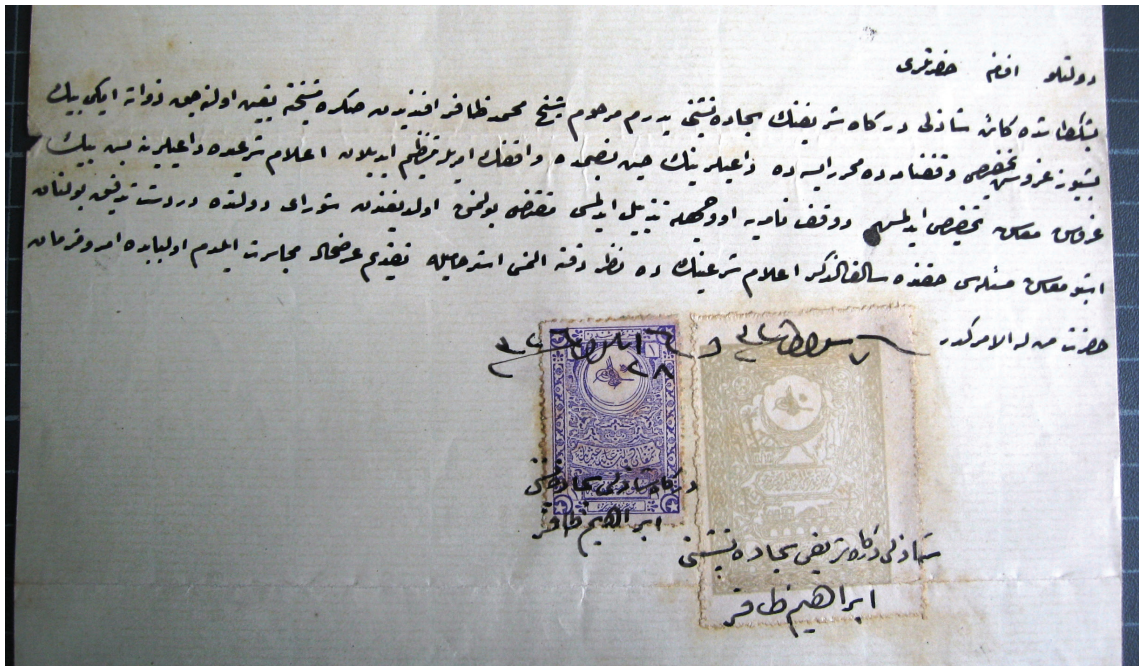 دولتلو افندم حضرتلری
بشكطاشده كائن شاذلی دركاه شريفنك سجاده نشينی پدرم مرحوم شيخ محمد ظافر افنديدن صكره مشيخته تعيين اولنه جق ذواته ايكی بيك
بشيوز غروش تخصيصی وقفنامه ده محرر ايسه ده داعيلرينك حين نصبمده واقفك اويله تنظيم ايديلان اعلام شرعيده داعيلرينه بش بيك
غروش معاش تخصيص ايدلمش وقفنامه او وجهله تذييل ايدلمسی مقتضی بولنمش اولديغندن شورای دولتده دردست تدقيق بولنان
اشبو معاش مسئله سی حقنده سالف الذكر اعلام شرعينك ده نظر دقته النمسی استرحاميله تقديم عرضحاله مجاسرت ايلدم اولبابده امر و فرمان
حضرت من له الامركدر
دركاه شاذلی سجاده نشينی
ابراهيم ظافر
شاذلی دركاه شريفی سجاده نشينی
ابراهيم ظافر